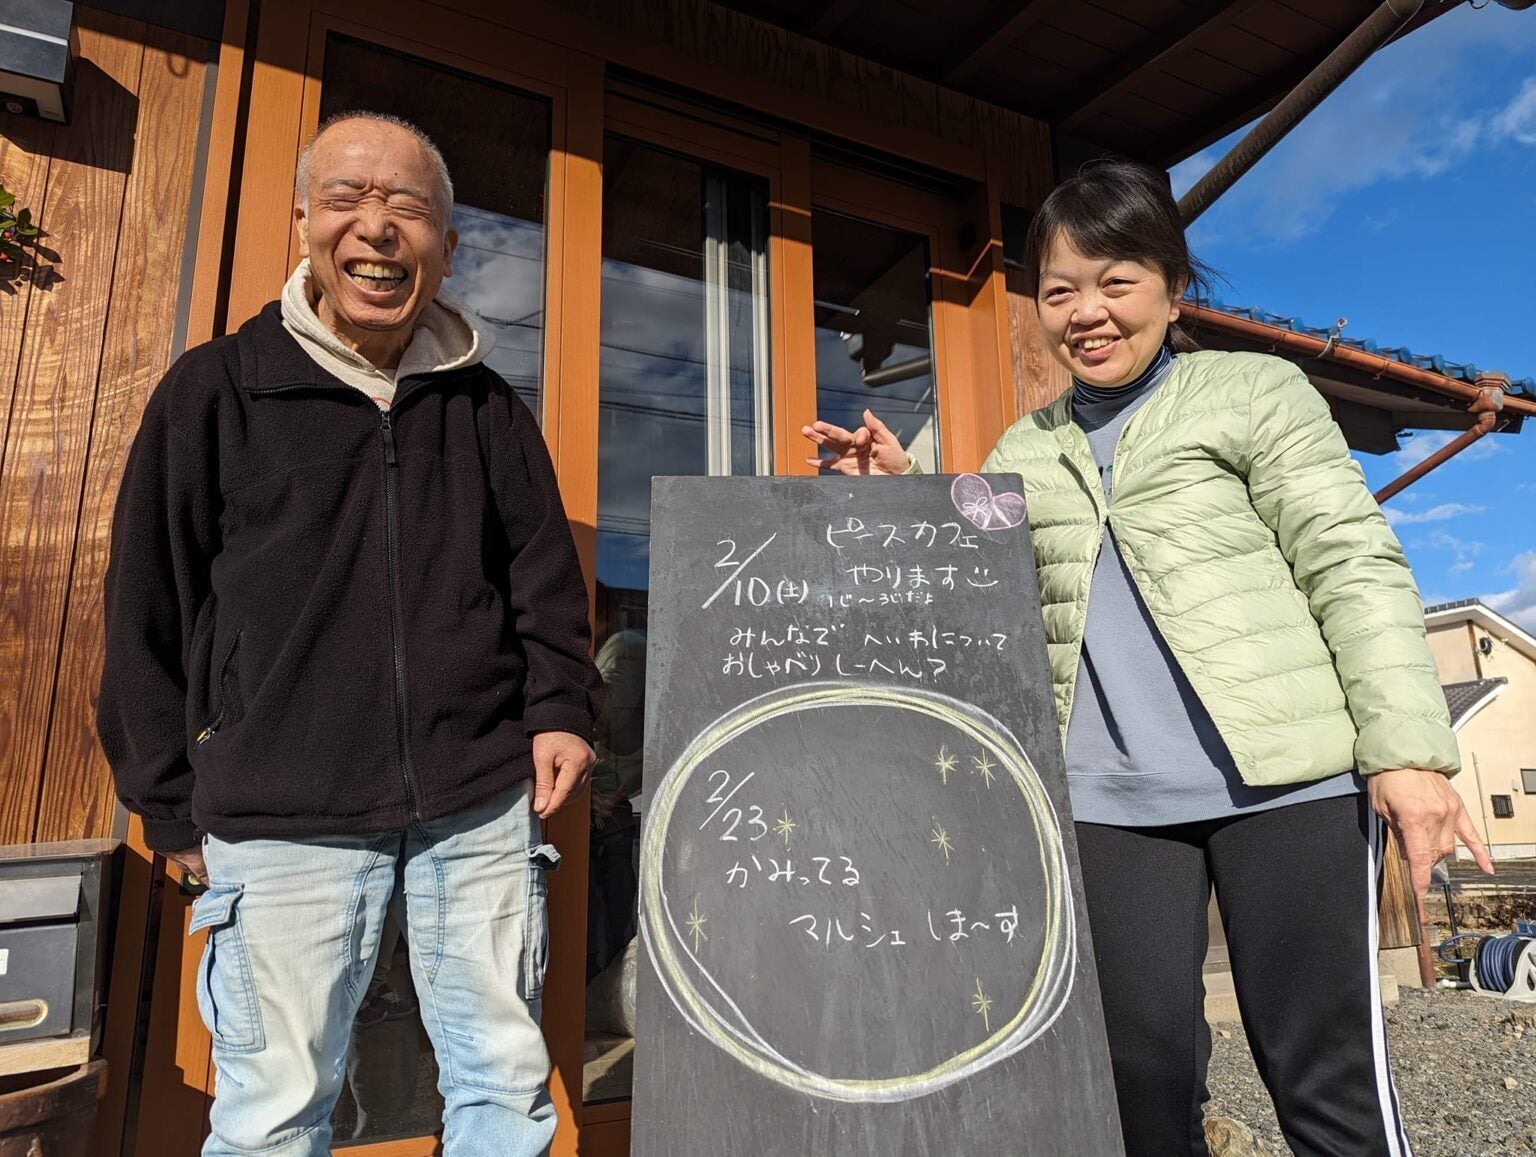 2/10(土) ピースカフェ
やります
1じ〜3じだよ
みんなで へいわについて
おしゃべりしーへん?
2/23
かみってる
マルシェ しま〜す